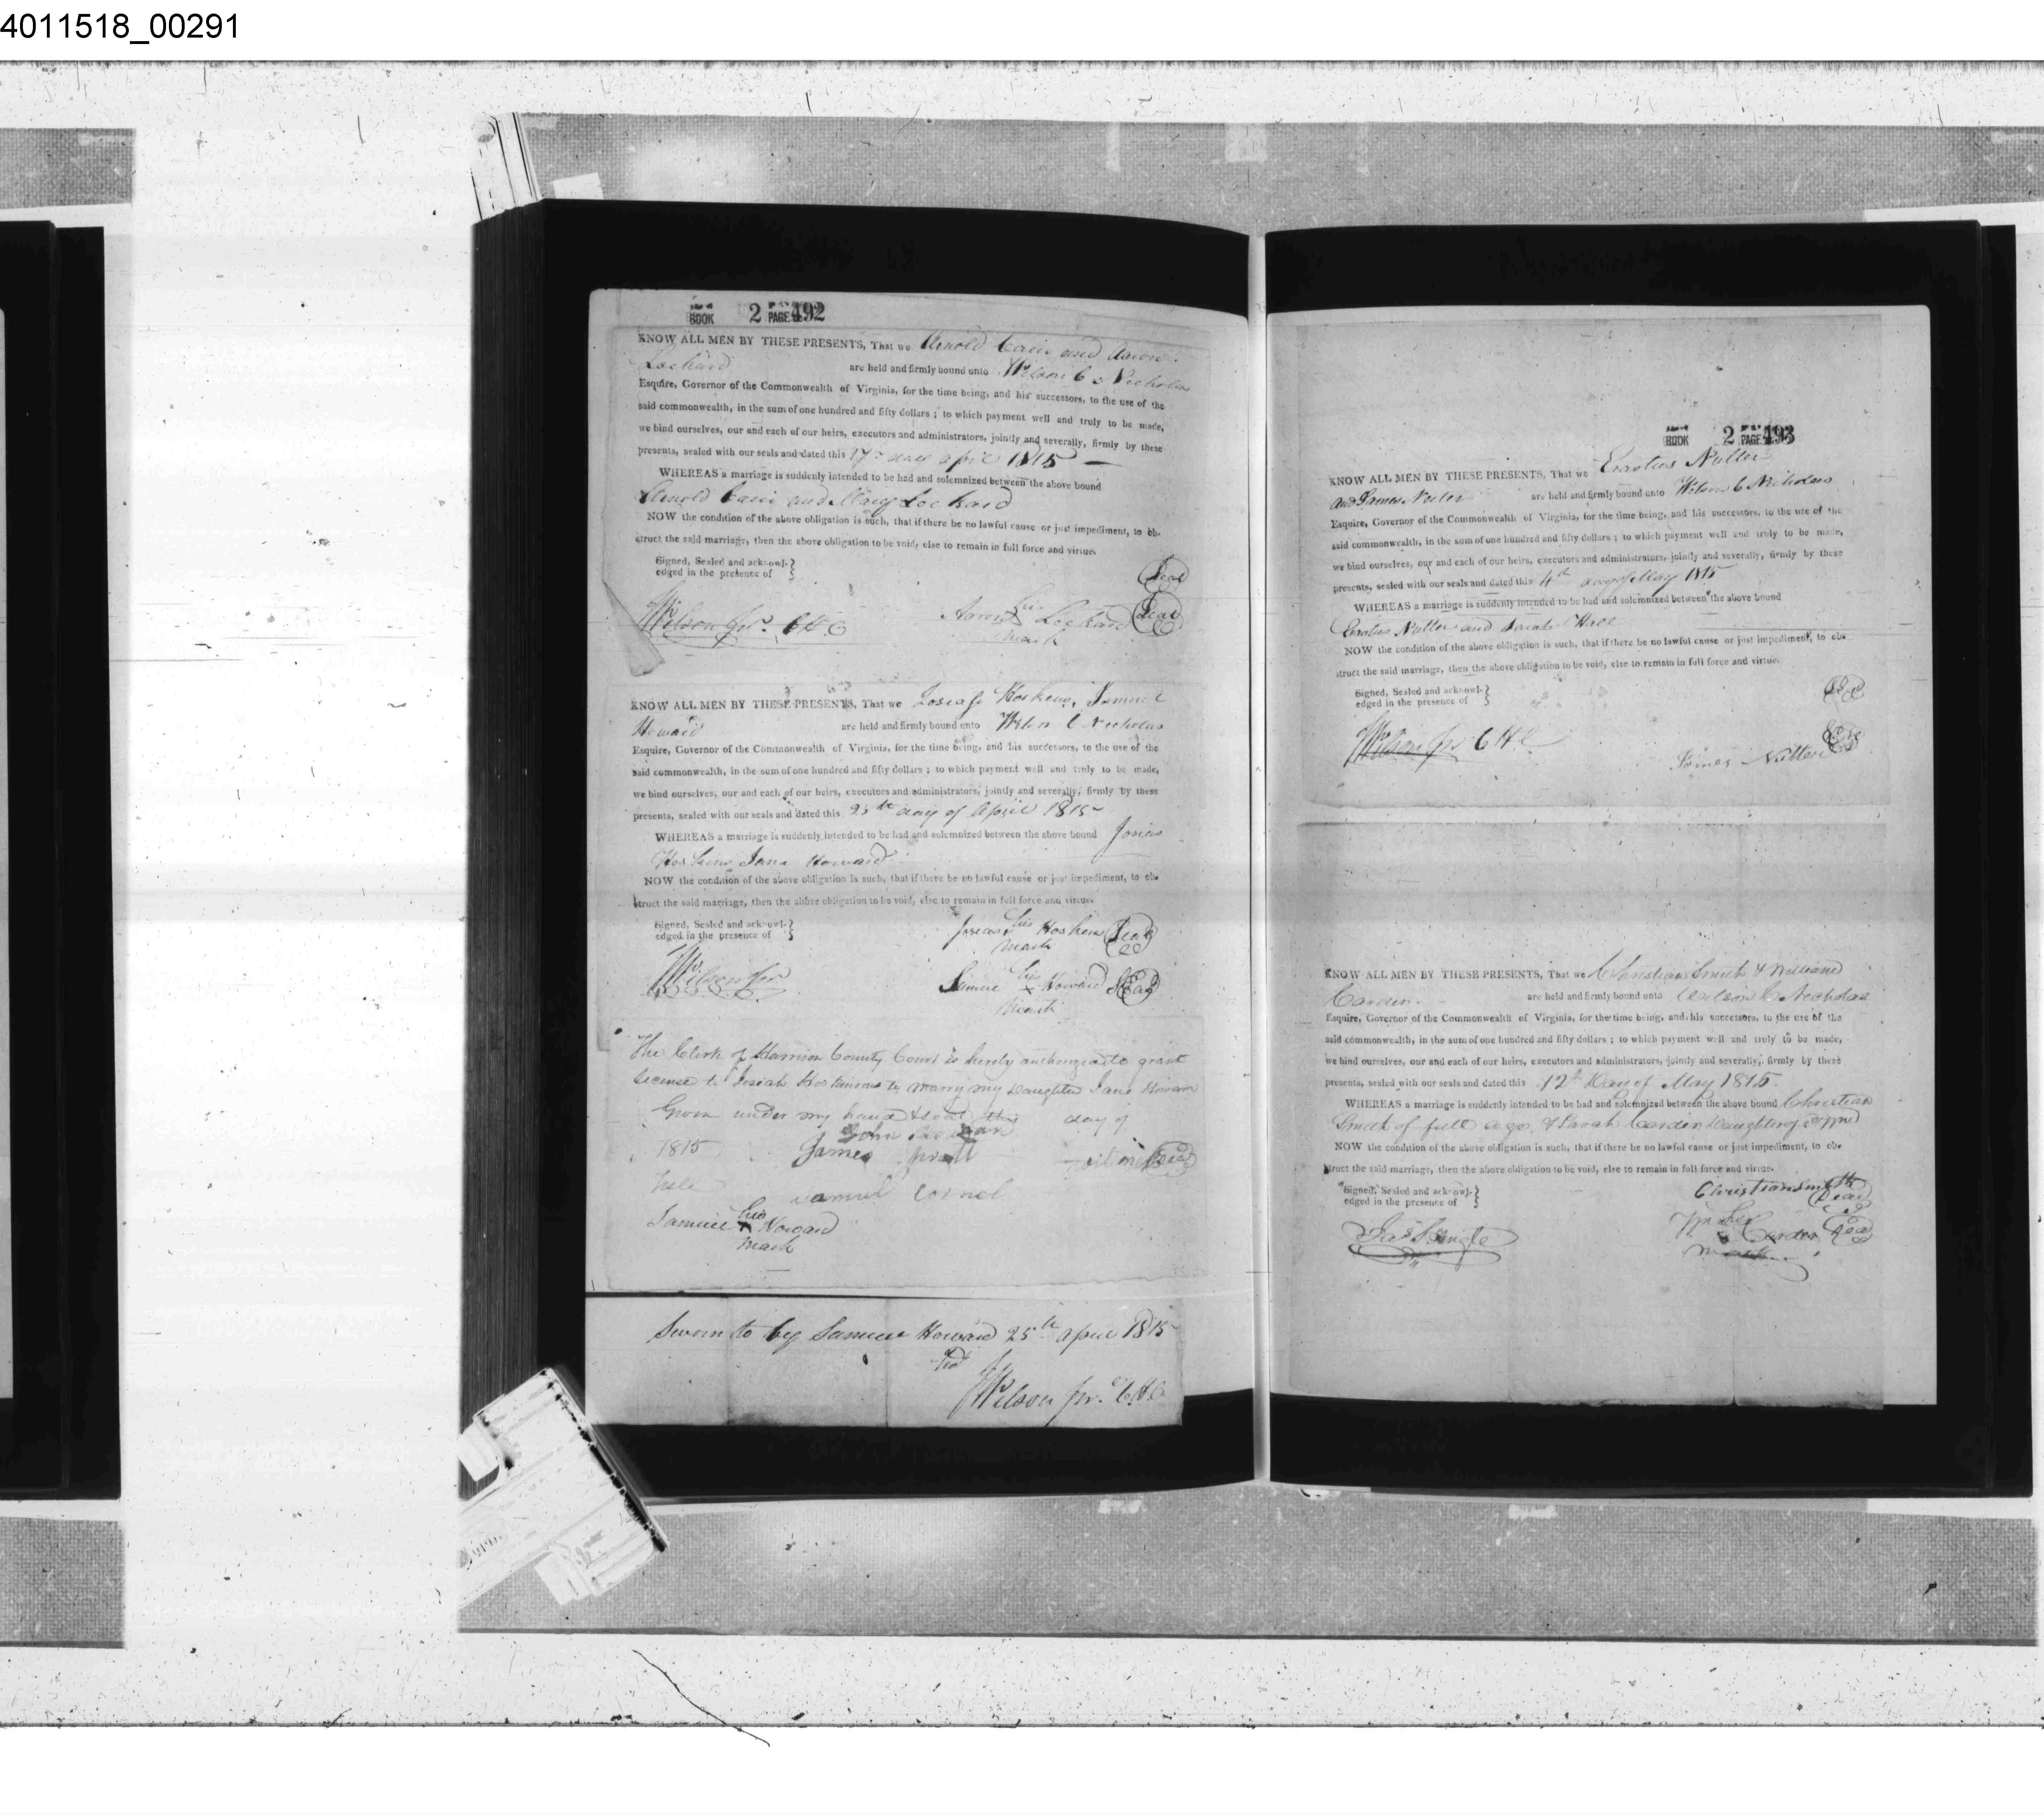 4011518_00291
BOOK 2 PAGE 492
KNOW ALL MEN BY THESE PRESENTS, That we Arnold and Aaron
Lockard are held and firmly bound unto Wilson C. Nicholas
Esquire, Governor of the Commonwealth of Virginia, for the time being, and his successors, to the use of the
said commonwealth, in the sum of one hundred and fifty dollars ; to which payment well and truly to be made,
we bind ourselves, our and each of our heirs, executors and administrators, jointly and severally, firmly by these
presents, sealed with our seals and dated this day 1815
WHEREAS a marriage is suddenly intended to be had and solemnized between the above bound
Arnold and Mary Lockard
NOW the condition of the above obligation is such, that if there be no lawful cause or just impediment, to ob-
struct the said marriage, then the above obligation to be void, else to remain in full force and virtue.
Signed, Sealed and acknowl-
edged in the presence of
Seal
Wilson Jr. C H C Aaron his X Lockard Seal
mark
KNOW ALL MEN BY THESE PRESENTS, That we Hoskens, Samuel
Howard are held and firmly bound unto Wilson C Nicholas
Esquire, Governor of the Commonwealth of Virginia, for the time being, and his successors, to the use of the
said commonwealth, in the sum of one hundred and fifty dollars ; to which payment well and truly to be made,
we bind ourselves, our and each of our heirs, executors and administrators, jointly and severally, firmly by these
presents, sealed with our seals and dated this 25th day of April 1815
WHEREAS a marriage is suddenly intended to be had and solemnized between the above bound Josias
Hoskens Jane Howard
NOW the condition of the above obligation is such, that if there be no lawful cause or just impediment, to ob-
struct the said marriage, then the above obligation to be void, else to remain in full force and virtue.
Signed, Sealed and acknowl-
edged in the presence of
Josias his Hoskens Seal
mark
Wilson Jr
Samuel his X Howard Seal
mark
The Clerk of Harrison County Court is hereby authorized to grant
license to Josiah to marry my Daughter Jane Howard
Given under my hand & seal this day of
1815 John
James Seal
Samuel
Samuel his X Howard
mark
Sworn to by Samuel Howard 25th April 1815
Wilson Jr. C H C
BOOK 2 PAGE 493
KNOW ALL MEN BY THESE PRESENTS, That we Erastus Nutter
and James Nutter are held and firmly bound unto Wilson C Nicholas
Esquire, Governor of the Commonwealth of Virginia, for the time being, and his successors, to the use of the
said commonwealth, in the sum of one hundred and fifty dollars ; to which payment well and truly to be made,
we bind ourselves, our and each of our heirs, executors and administrators, jointly and severally, firmly by these
presents, sealed with our seals and dated this 4th day of May 1815
WHEREAS a marriage is suddenly intended to be had and solemnized between the above bound
Erastus Nutter and Sarah Hall
NOW the condition of the above obligation is such, that if there be no lawful cause or just impediment, to ob-
struct the said marriage, then the above obligation to be void, else to remain in full force and virtue.
Signed, Sealed and acknowl-
edged in the presence of
Seal
Wilson Jr C H C
James Nutter Seal
KNOW ALL MEN BY THESE PRESENTS, That we Christian Smith & William
Carder. are held and firmly bound unto Wilson C Nicholas
Esquire, Governor of the Commonwealth of Virginia, for the time being, and his successors, to the use of the
said commonwealth, in the sum of one hundred and fifty dollars ; to which payment well and truly to be made,
we bind ourselves, our and each of our heirs, executors and administrators, jointly and severally, firmly by these
presents, sealed with our seals and dated this 12th Day of May 1815.
WHEREAS a marriage is suddenly intended to be had and solemnized between the above bound Christian
Smith of full age, & Sarah Carder Daughter of
NOW the condition of the above obligation is such, that if there be no lawful cause or just impediment, to ob-
struct the said marriage, then the above obligation to be void, else to remain in full force and virtue.
Signed, Sealed and acknowl-
edged in the presence of
Christian Smith Seal
Wm his Carder Seal
mark